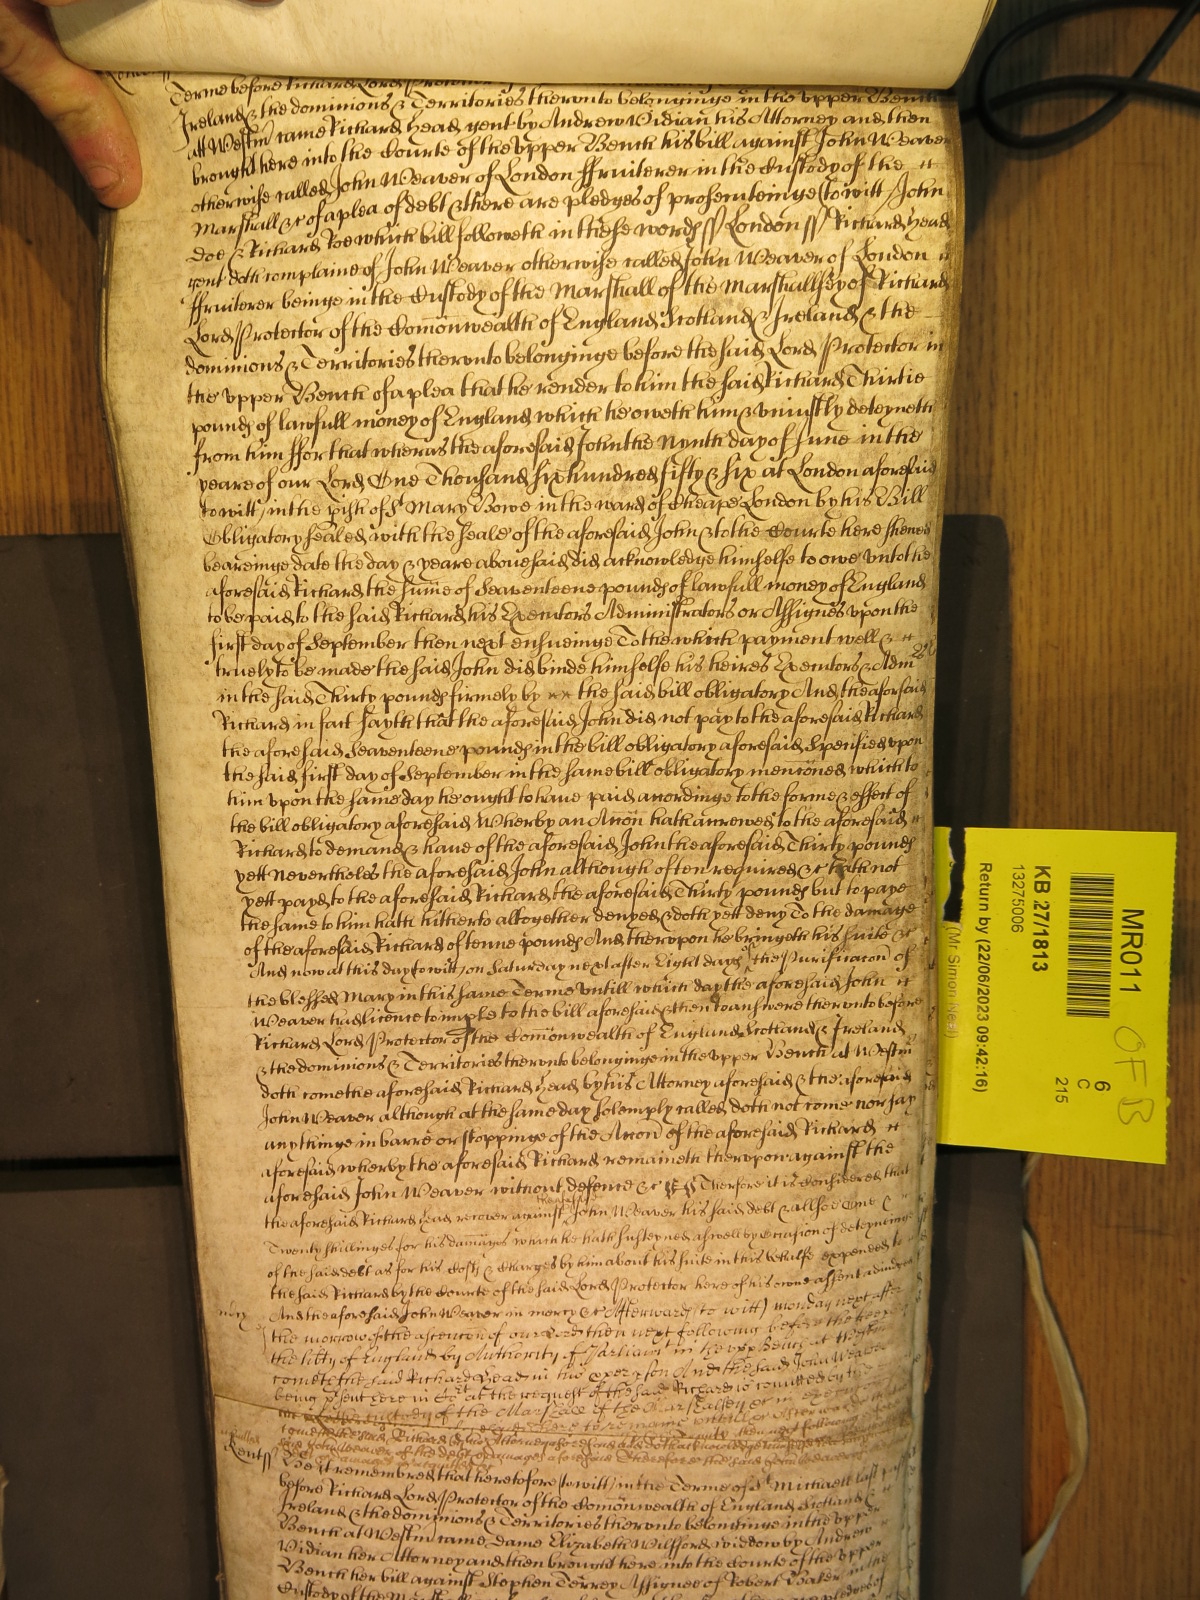 Terme before Richard Lord Protector
Ireland & the dominions & Territories therunto belonginge in the upper Bench
att Westm came Richard Head gent by Andrew Vidian his Attorney and then
brought here into the Courte of the upper Bench his bill against John Weaver
otherwise called John Weaver of London ffruiterer in the Custody of the
Marshall &c of a plea of debt & there are pledges of prosecuteinge (to witt) John
Doe & Richard Roe which bill followeth in these words ss London ss Richard Head
gent doth complaine of John Weaver otherwise called John Weaver of London
ffruiterer beinge in the Custody of the Marshall of the Marshallsey of Richard
Lord Protector of the Comonwealth of England Scotland & Ireland & the
dominions & Territories therunto belonginge before the said Lord Protector in
the upper Bench of a plea that he render to him the said Richard Thirtie
pounds of lawfull money of England which he oweth him & uniustly deteyneth
from him ffor that wheras the aforesaid John the Nynth day of June in the
yeare of our Lord One Thousand six hundred fifty & six at London aforesaid
(to witt) in the pish of St Mary Bowe in the ward of Cheape London by his Bill
Obligatory sealed with the seale of the aforesaid John & to the Courte here shewed
beareinge date the day & yeare abouesaid did acknowledge himselfe to owe unto the
aforesaid Richard the sume of Seaventeene pounds of lawfull money of England
to be paid to the said Richard his Executors Administrators or Assignes upon the
first day of September then next ensueinge To the which payment well &
truely to be made the said John did binde himselfe his heires Executors & Adm
in the said Thirty pounds firmely by the said bill obligatory And the aforesaid
Richard in fact sayth that the aforesaid John did not pay to the aforesaid Richard
the aforesaid Seaventeene pounds in the bill obligatory aforesaid Specified upon
the said first day of September in the same bill obligatory menconed which to
him upon the same day he ought to haue paid accordinge to the forme & effect of
the bill obligatory aforesaid Wherby an Accon hath accrewed to the aforesaid
Richard to demand & haue of the aforesaid John the aforesaid Thirty pounds
yett nevertheles the aforesaid John although often required &c hath not
yett payd to the aforesaid Richard the aforesaid Thirty pounds but to paye
the same to him hath hitherto altogether denyed & doth yett deny To the damage
of the aforesaid Richard of tenne pounds And therupon he bringeth his suite &c
And now at this day (to witt) on Saturday next after Eight days of the Purificacon of
the blessed Mary in this same Terme Untill which day the aforesaid John
Weaver had licence to imple to the bill aforesaid & then to answere therunto before
Richard Lord Protector of the Comonwealth of England Scotland & Ireland
& the dominions & Territories therunto belonginge in the upper Bench at Westm
doth come the aforesaid Richard Head by his Attorney aforesaid & the aforesaid
John Weaver although at the same day solemply called doth not come nor say
any thinge in barre or stoppinge of the Accon of the aforesaid Richard
aforesaid wherby the aforesaid Richard remaineth therupon against the
aforesaid John Weaver without defence &c Therfore it is Considered that
the aforesaid Richard Head recover against the aforesaid John Weaver his said debt & allsoe
Twenty shillinges for his damages which he hath susteyned aswell by Occasion of deteyninge
of the said debt as for his Costs & Charges by him about his suite in this behalfe expended to
the said Richard by the Courte of the said Lord Protector here of his owne assent adiudged
mcy And the aforesaid John Weaver in mercy &c Afterward (to witt) monday next after
the morrow of the ascencon of our Lord then next following before the keepers of
the liberty of England by Authority of Parliamt in the upp Bench at Westm
cometh the said Richard Head in his pper pson And the said John Weaver
being psent here in Co at the request of the said Richard is comitted
custody of the Marshall of the Marshalsey &c in execucon
Kent ss Be it remembred that heretofore (to witt) in the Terme of St Michaell last past
before Richard Lord Protector of the Comonwealth of England Scotland &
Ireland & the dominions & Territories therunto belonginge in the upper
Bench at Westm came Dame Elizabeth Wilfford widdow by Andrew
Vidian her Attorney and then brought here into the Courte of the upper
Bench her bill against Stephen Terrey Assignee of Robert Baker in the
Custody of the
MR011
6
C
215
KB 27/1813
13275006
Return by (22/06/2023 09:42:16)
(Mr Simon Neal)
OFB